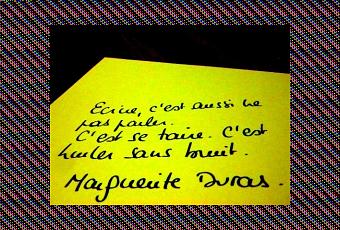 Ecrire, c'est aussi ne
pas parler.
C'est se taire. C'est
hurler sans bruit.
Marguerite Duras.